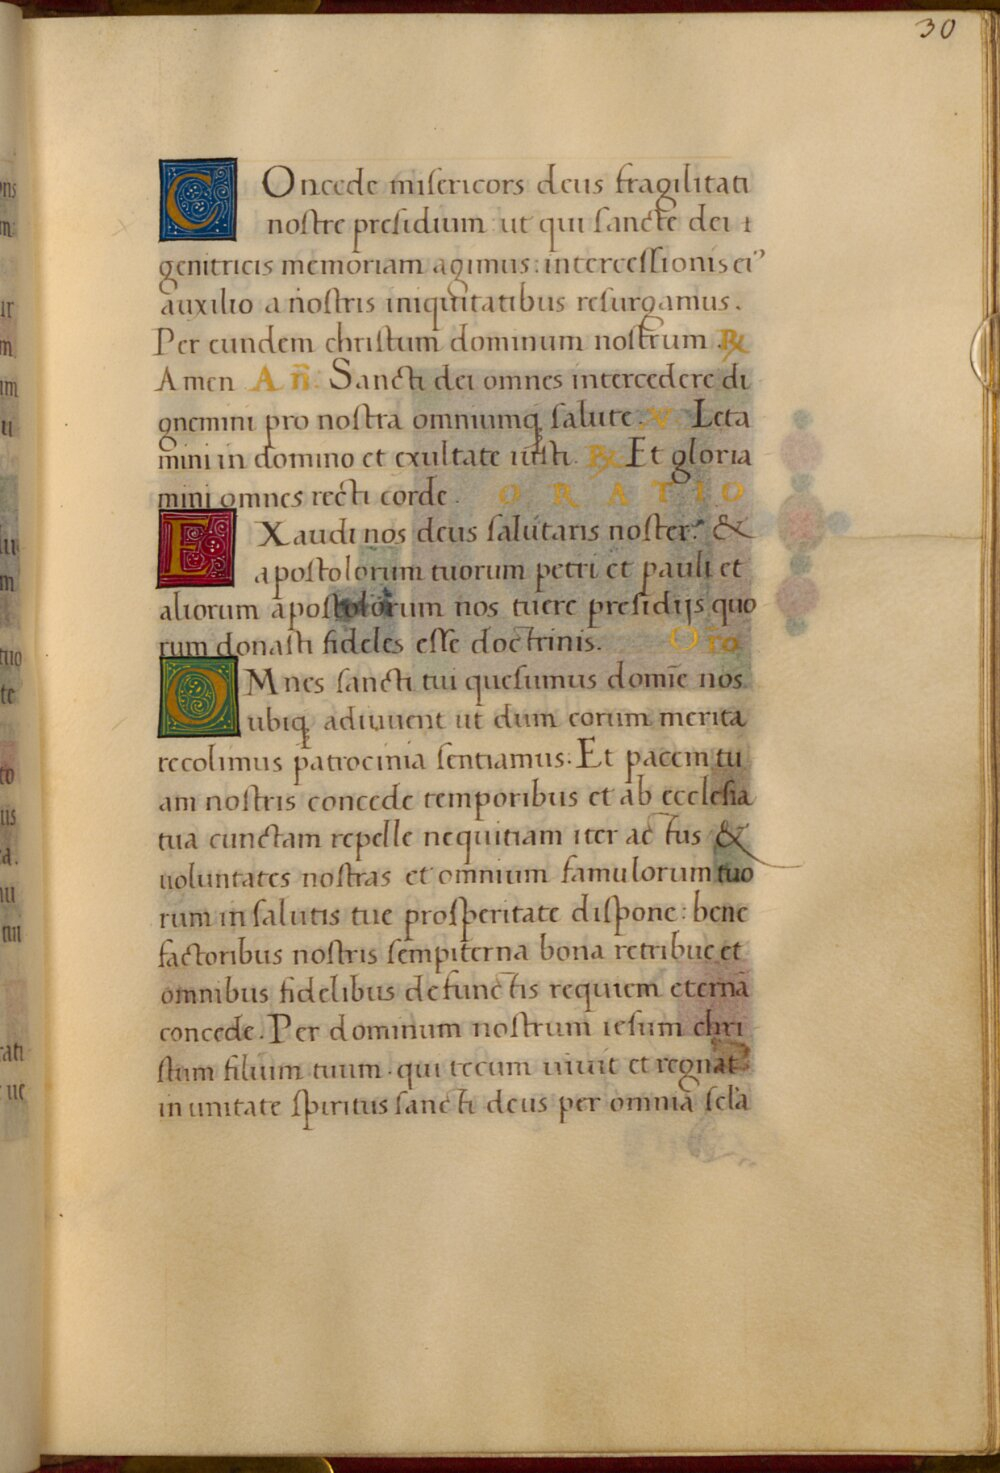 30
COncede misericors deus fragilitati
nostre presidium ut qui sancte dei
genitricis memoriam agimus: intercessionis ei⁹
auxilio a nostris iniquitatibus resurgamus.
Per eundem christum dominum nostrum. ℟
Amen Añ. Sancti dei omnes intercedere di
gnemini pro nostra omniumqꝫ salute. ℣ Leta
mini in domino et exultate iusti. ℟ Et gloria
mini omnes recti corde. ORATIO
EXaudi nos deus salutaris noster: &
apostolorum tuorum petri et pauli et
aliorum apostolorum nos tuere presidijs quo
rum donasti fideles esse doctrinis. Or̄o
OMnes sancti tui quesumus domīe nos
ubiqꝫ adiuuent ut dum eorum merita
recolimus patrocinia sentiamus: Et pacem tu
am nostris concede temporibus et ab ecclesia
tua cunctam repelle nequitiam iter actus &
uoluntates nostras et omnium famulorum tuo
rum in salutis tue prosperitate dispone: bene
factoribus nostris sempiterna bona retribue et
omnibus fidelibus defunctis requiem eternā
concede. Per dominum nostrum iesum chri
stum filium tuum. qui tecum uiuit et regnat
in unitate spiritus sancti deus per omnia sc̄la